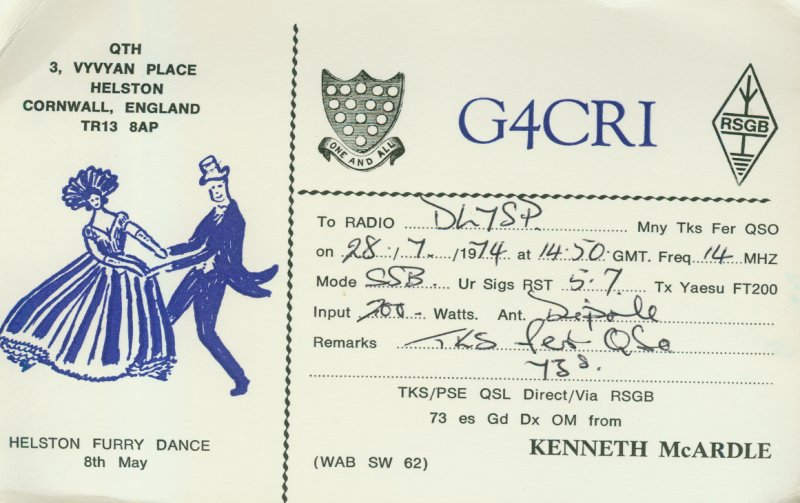 QTH
3, VYVYAN PLACE
HELSTON
CORNWALL, ENGLAND
TR13 8AP
HELSTON FURRY DANCE
8th May
ONE AND ALL
G4CRI
RSGB
To RADIO DL7SP. Mny Tks Fer QSO
on 28/7/1974 at 14.50 GMT. Freq 14 MHZ
Mode SSB Ur Sigs RST 5.7 Tx Yaesu FT200
Input 200 Watts. Ant. Dipole
Remarks TKS fer QSo
73s.
TKS/PSE QSL Direct/Via RSGB
73 es Gd Dx OM from
KENNETH McARDLE
(WAB SW 62)